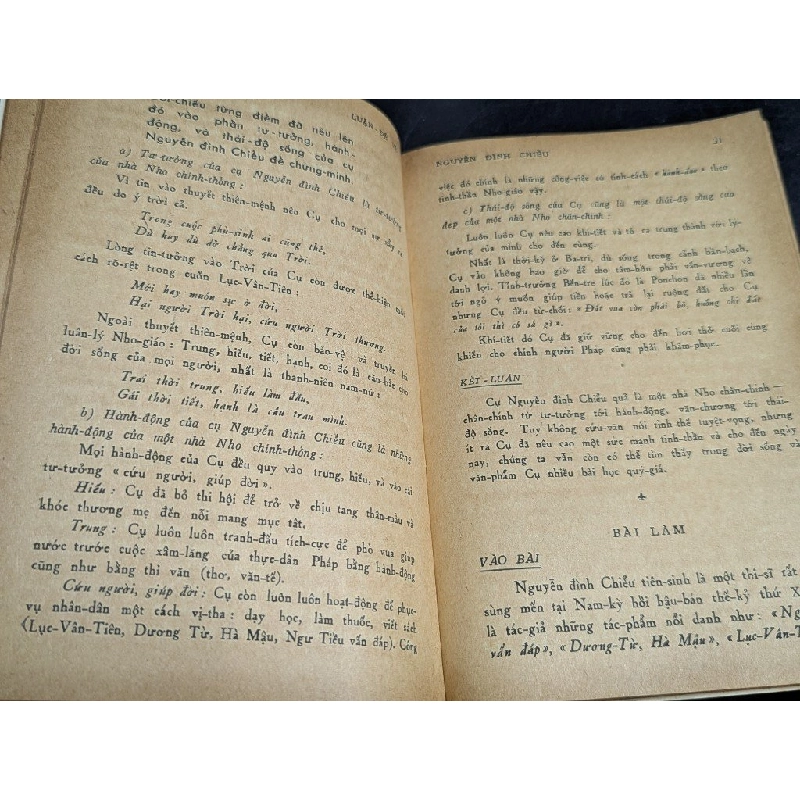 LUẬN-ĐỀ
chiếu từng điểm đã nêu lên
đó vào phần tư-tưởng, hành-
động, và thái-độ sống của cụ
Nguyễn đình Chiểu để chứng-minh.
a) Tư-tưởng của cụ Nguyễn đình Chiểu là tư-tưởng
của nhà Nho chính-thống :
Vì tin vào thuyết thiên-mệnh nên Cụ cho mọi sự xẩy ra
đều do ý trời cả.
Trong cuộc phù-sinh ai cũng thế,
Dù hay dù dở chẳng qua Trời.
Lòng tin-tưởng vào Trời của Cụ còn được thể-hiện một
cách rõ-rệt trong cuốn Lục-Vân-Tiên :
Mới hay muôn sự ở đời,
Hại người Trời hại, cứu người Trời thương.
Ngoài thuyết thiên-mệnh, Cụ còn bảo-vệ và truyền bá
luân-lý Nho-giáo : Trung, hiếu, tiết, hạnh, coi đó là cần-thiết cho
đời sống của mọi người, nhất là thanh-niên nam-nữ :
Trai thời trung, hiếu làm đầu,
Gái thời tiết, hạnh là câu trau mình.
b) Hành-động của cụ Nguyễn đình Chiểu cũng là những
hành-động của một nhà Nho chính-thống :
Mọi hành-động của Cụ đều quy vào trung, hiếu, và vào cái
tư-tưởng « cứu người, giúp đời ».
Hiếu : Cụ đã bỏ thi hội để trở về chịu tang thân-mẫu và
khóc thương mẹ đến nỗi mang mục tật.
Trung : Cụ luôn luôn tranh-đấu tích-cực để phò vua giúp
nước trước cuộc xâm-lăng của thực-dân Pháp bằng hành-động
cũng như bằng thi văn (thơ, văn-tế).
Cứu người, giúp đời : Cụ còn luôn luôn hoạt-động để phục-
vụ nhân-dân một cách vị-tha : dạy học, làm thuốc, viết sách
(Lục-Vân-Tiên, Dương Từ, Hà Mậu, Ngư Tiều vấn đáp). Công
NGUYỄN ĐÌNH CHIỂU
31
việc đó chính là những công-tiếc có tính-cách « hành-đạo » theo
tinh-thần Nho-giáo vậy.
c) Thái-độ sống của Cụ cũng là một thái-độ sống cao
đẹp của một nhà Nho chân-chính :
Luôn luôn Cụ nêu cao khí-tiết và tỏ ra trung thành với lý-
tưởng của mình cho đến cùng.
Nhất là thời-kỳ ở Ba-tri, dù sống trong cảnh hàn-bạch,
Cụ vẫn không bao giờ để cho tâm-hồn phải vấn-vương về
danh lợi. Tỉnh-trưởng Bến-tre lúc ấy là Ponchon đã nhiều lần
tới ngỏ ý muốn giúp tiền hoặc trả lại ruộng đất cho Cụ
nhưng Cụ đều từ-chối : « Đất vua còn phải bỏ, huống chi đất
của tôi tài có sá gì ».
Khí-tiết đó Cụ đã giữ vững cho đến hơi thở cuối cùng
khiến cho chính người Pháp cũng phải khâm-phục.
KẾT-LUẬN
Cụ Nguyễn đình Chiểu quả là một nhà Nho chân-chính —
chân-chính từ tư-tưởng tới hành-động, văn-chương tới thái-
độ sống. Tuy không cứu-vãn nổi tình thế tuyệt-vọng, nhưng
ít ra Cụ đã nêu cao một sức mạnh tinh-thần và cho đến ngày
nay, chúng ta vẫn còn có thể tìm thấy trong đời sống và
văn-phẩm Cụ nhiều bài học quý-giá.
+
BÀI LÀM
VÀO BÀI
Nguyễn đình Chiểu tiên-sinh là một thi-sĩ rất
sùng mến tại Nam-kỳ hồi hậu-bán thế-kỷ thứ X
là tác-giả những tác-phẩm nổi danh như : «Ng
vấn đáp», « Dương-Từ, Hà Mậu», «Lục-Vân-T